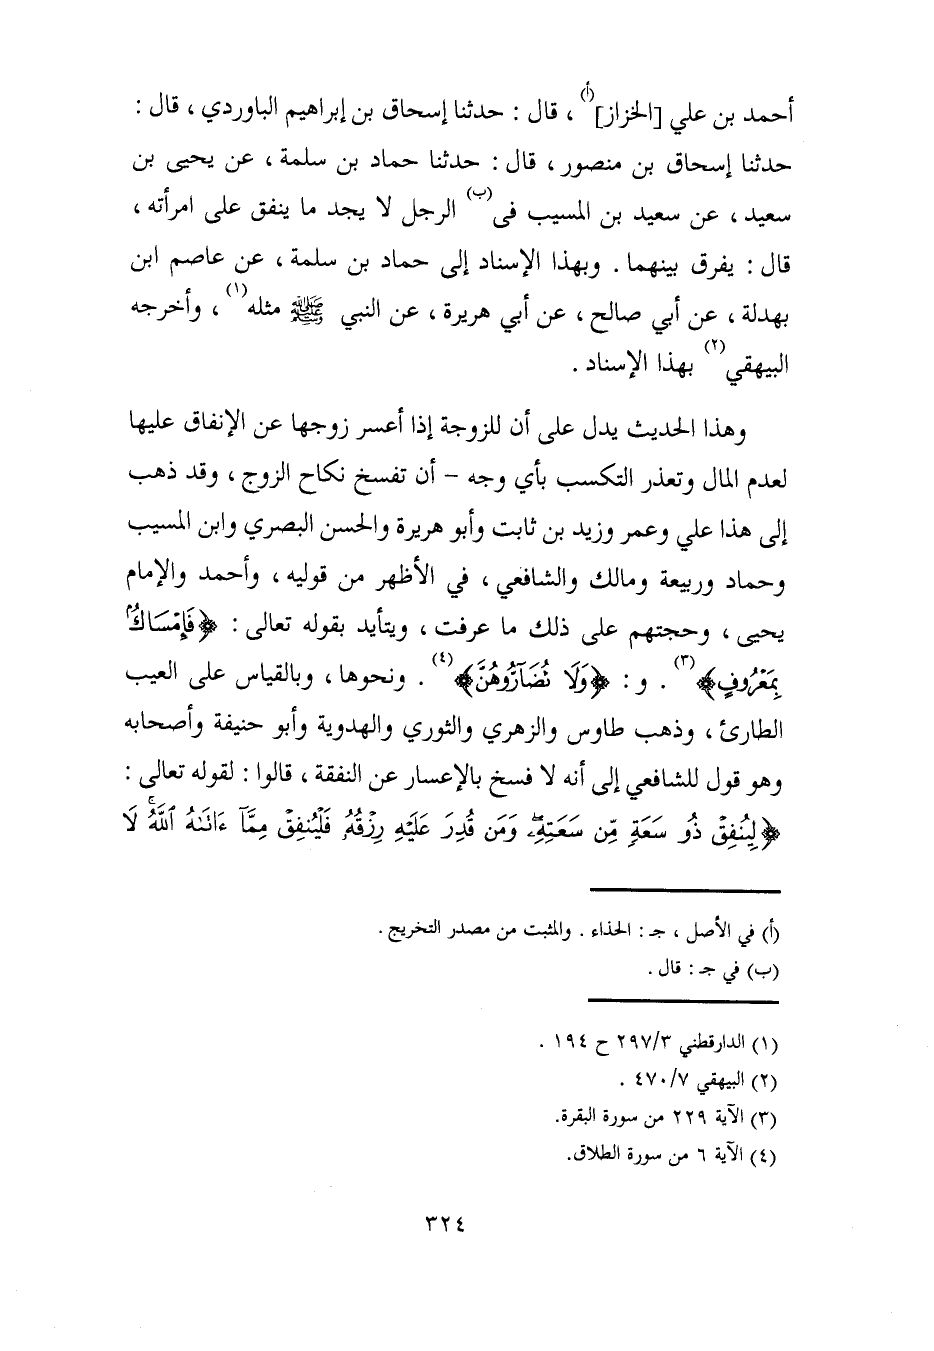 أحمد بن علي [الخزاز](أ) ، قال : حدثنا إسحاق بن إبراهيم الباوردي ، قال :
حدثنا إسحاق بن منصور ، قال : حدثنا حماد بن سلمة ، عن يحيى بن
سعيد ، عن سعيد بن المسيب فى(ب) الرجل لا يجد ما ينفق على امرأته ،
قال : يفرق بينهما . وبهذا الإسناد إلى حماد بن سلمة ، عن عاصم ابن
بهدلة ، عن أبي صالح ، عن أبي هريرة ، عن النبي ﷺ مثله(١) ، وأخرجه
البيهقي(٢) بهذا الإسناد .
وهذا الحديث يدل على أن للزوجة إذا أعسر زوجها عن الإنفاق عليها
لعدم المال وتعذر التكسب بأي وجه - أن تفسخ نكاح الزوج ، وقد ذهب
إلى هذا علي وعمر وزيد بن ثابت وأبو هريرة والحسن البصري وابن المسيب
وحماد وربيعة ومالك والشافعي ، في الأظهر من قوليه ، وأحمد والإمام
يحيى ، وحجتهم على ذلك ما عرفت ، ويتأيد بقوله تعالى : ﴿فَإِمْسَاكٌۢ
بِمَعْرُوفٍ﴾(٣) . و : ﴿وَلَا تُضَآرُّوهُنَّ﴾(٤) . ونحوها ، وبالقياس على العيب
الطارئ ، وذهب طاوس والزهري والثوري والهدوية وأبو حنيفة وأصحابه
وهو قول للشافعي إلى أنه لا فسخ بالإعسار عن النفقة ، قالوا : لقوله تعالى :
﴿لِيُنفِقْ ذُو سَعَةٍ مِّن سَعَتِهِۦۖ وَمَن قُدِرَ عَلَيْهِ رِزْقُهُۥ فَلْيُنفِقْ مِمَّآ ءَاتَىٰهُ ٱللَّهُۚ لَا
(أ) في الأصل ، جـ : الحذاء . والمثبت من مصدر التخريج .
(ب) في جـ : قال .
(١) الدارقطني ٢٩٧/٣ ح ١٩٤ .
(٢) البيهقي ٤٧٠/٧ .
(٣) الآية ٢٢٩ من سورة البقرة.
(٤) الآية ٦ من سورة الطلاق.
٣٢٤